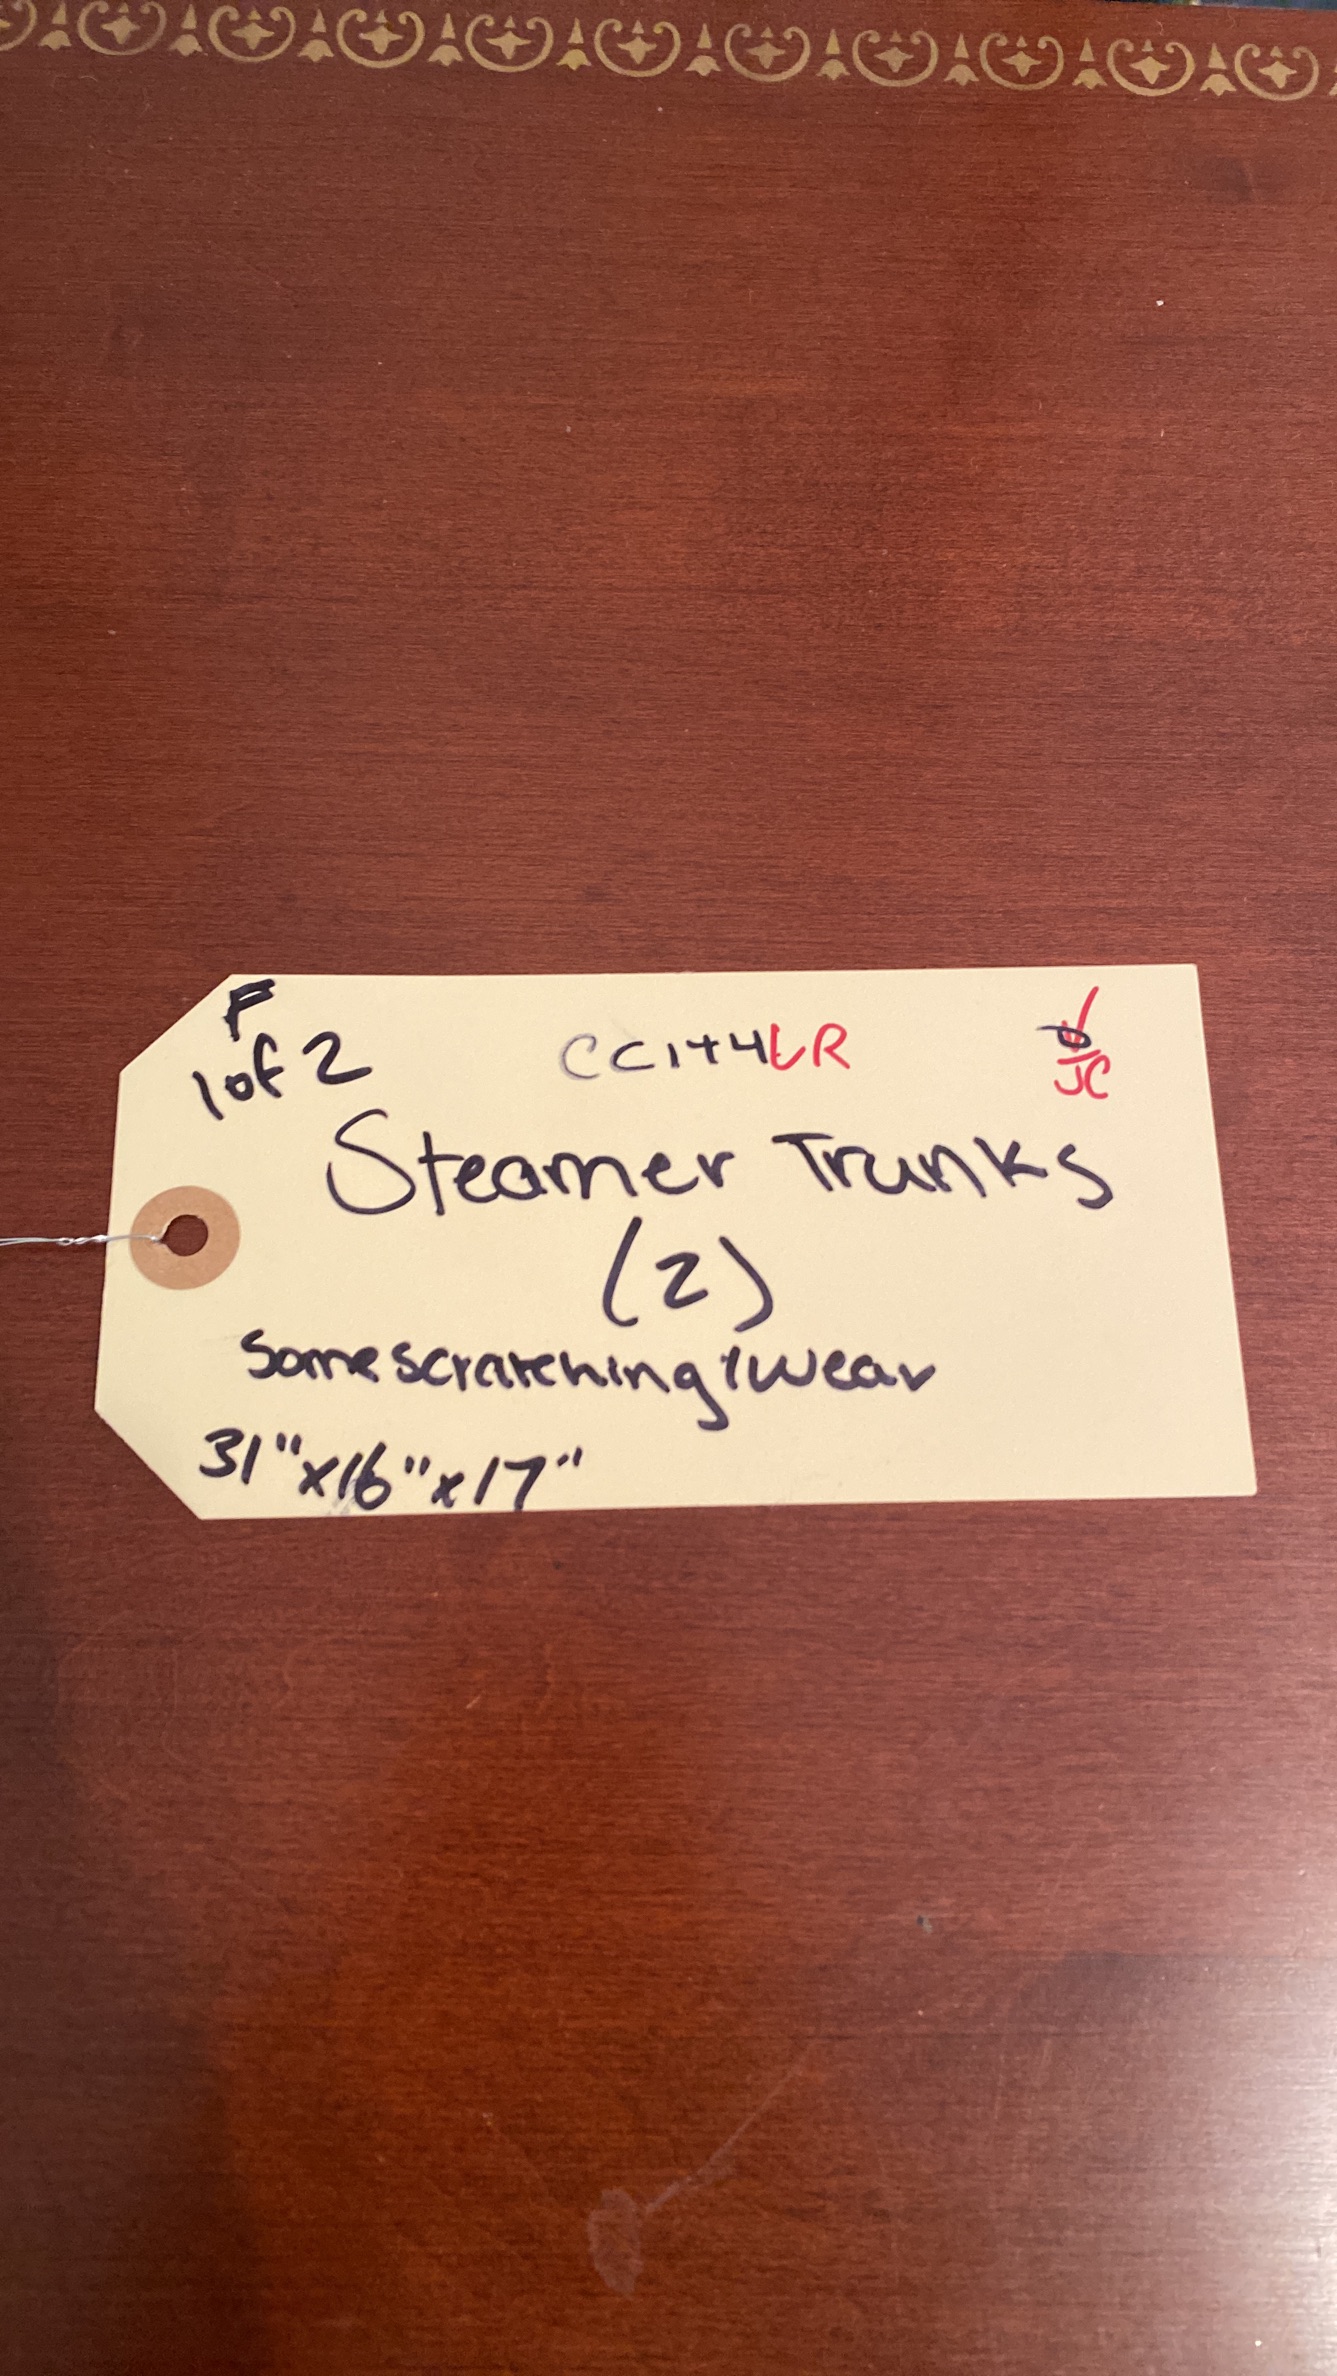 F
1 of 2
CC1744LR
JC
Steamer Trunks
(2)
Some scratching/wear
31"x16"x17"